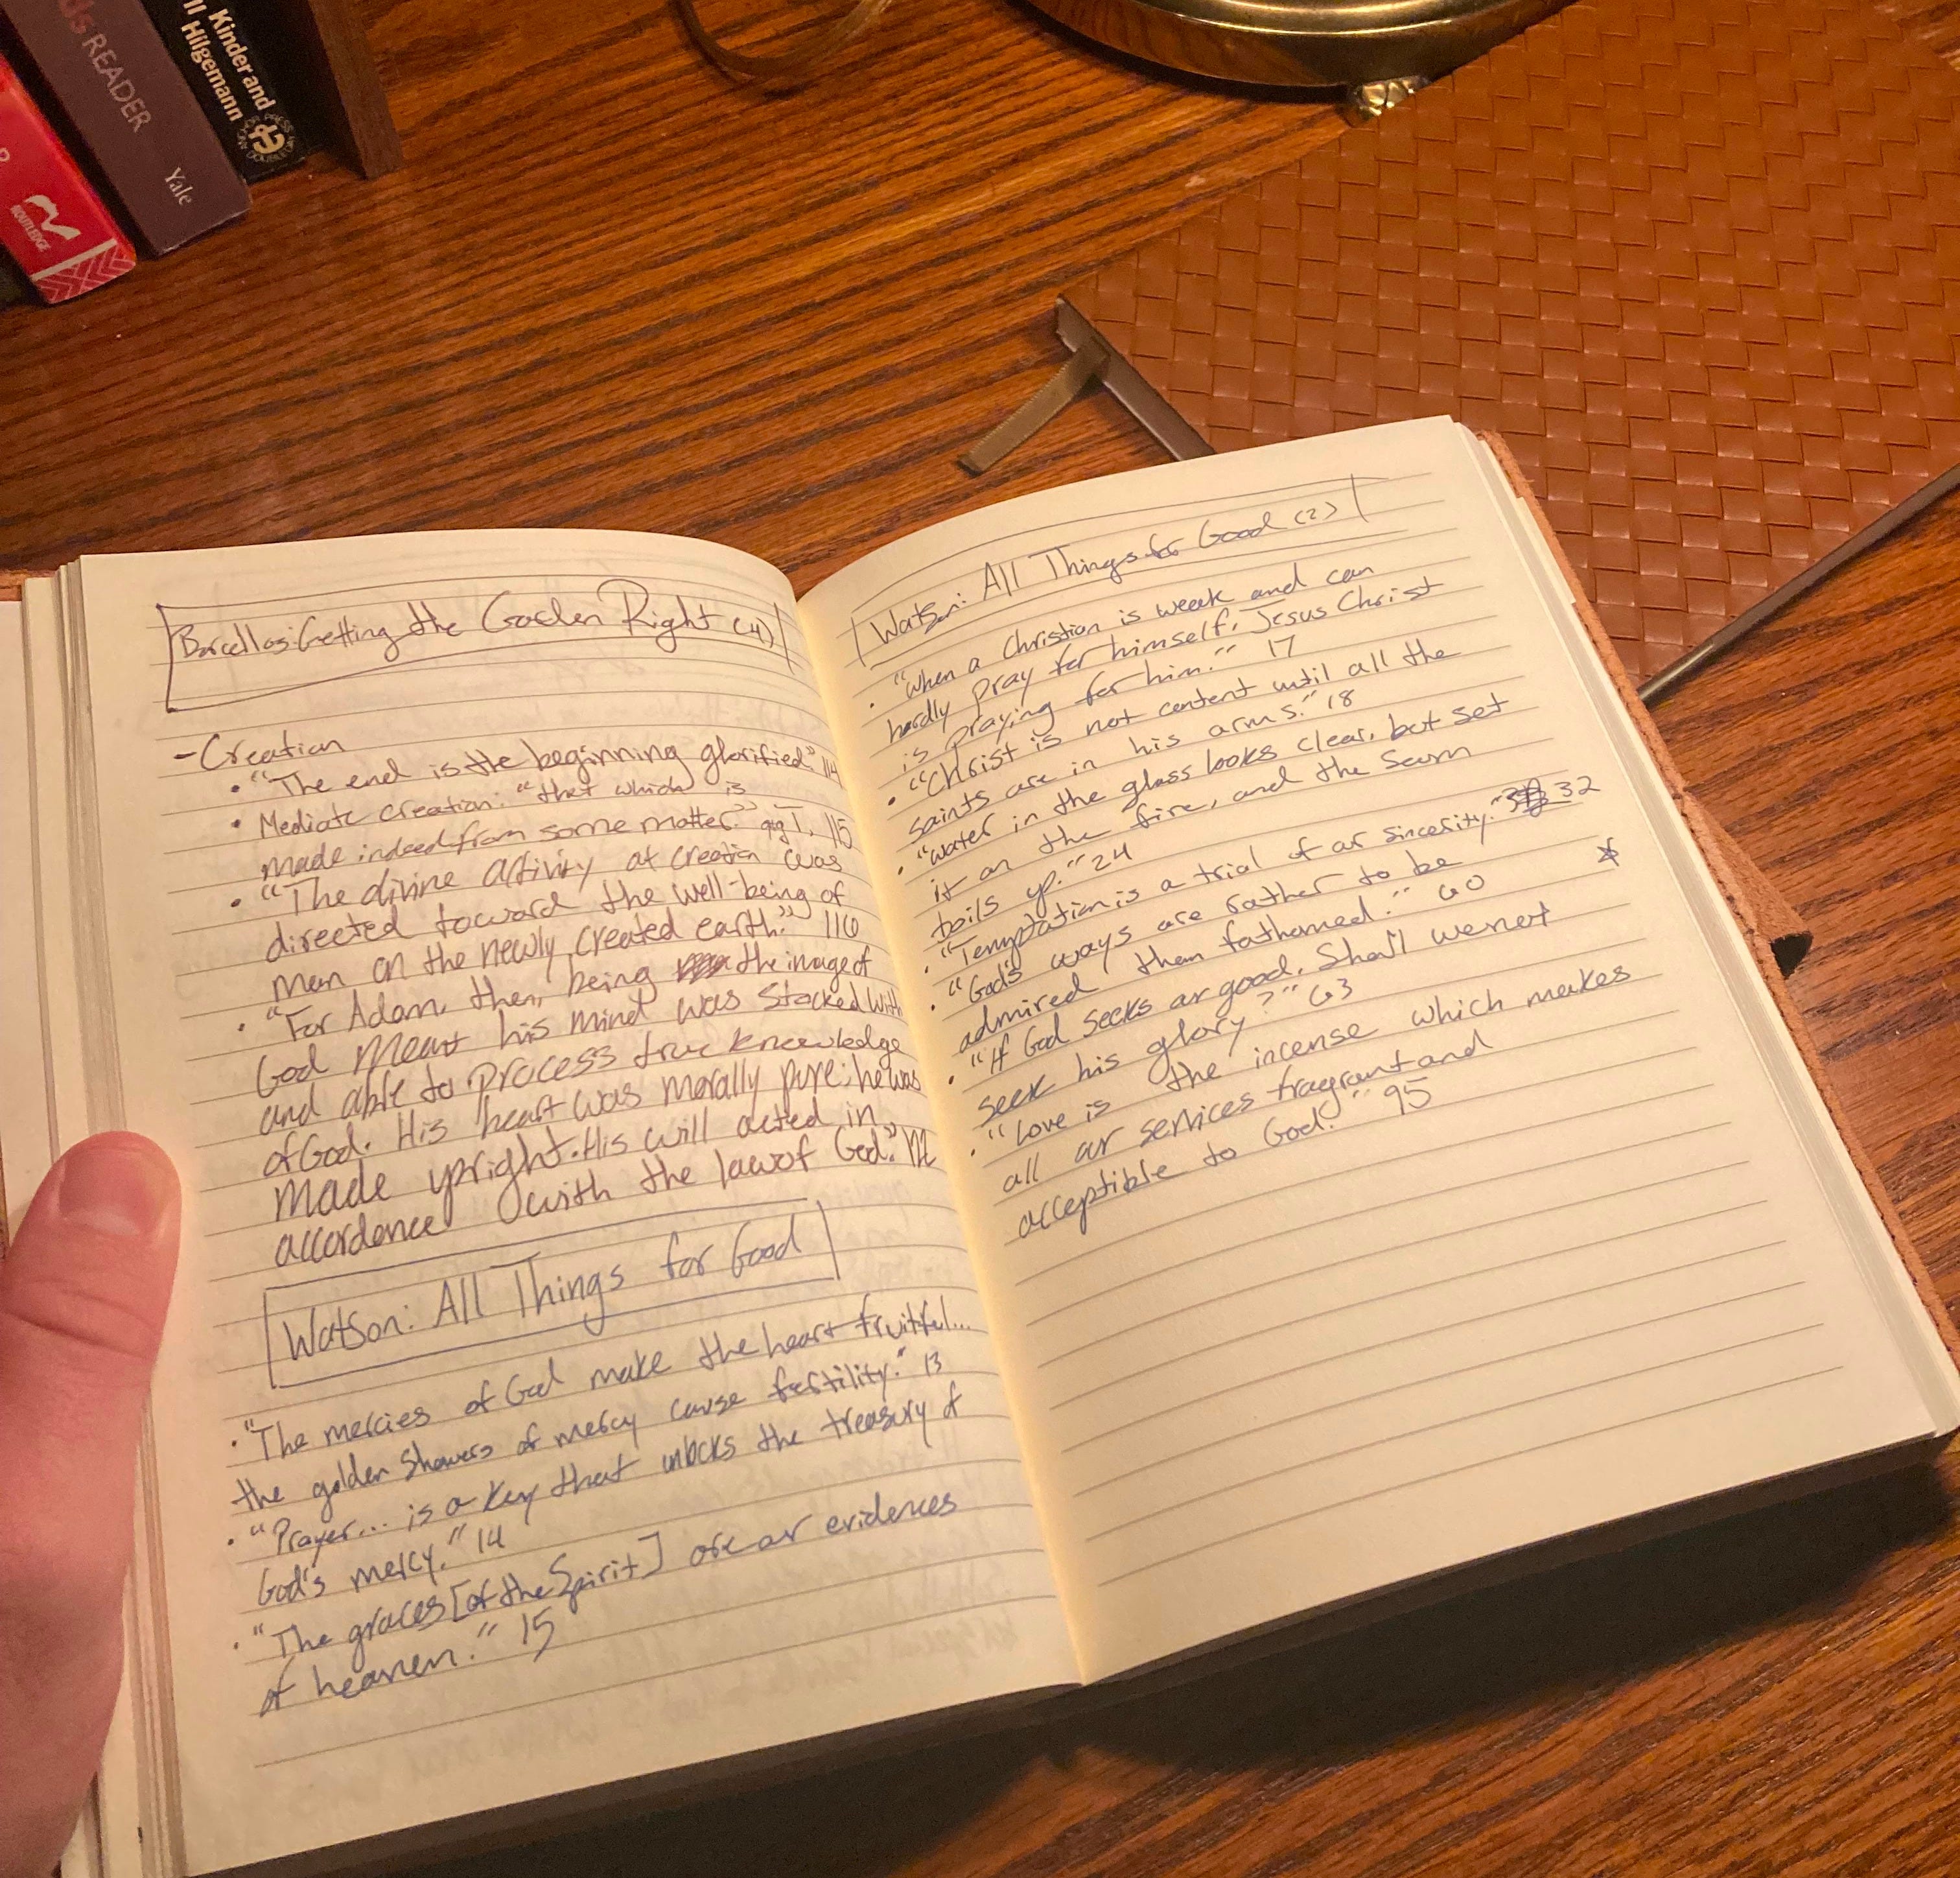 US READER
Yale
Kinder and
Hilgemann
ANCHOR PRESS
ROUTLEDGE
Barcellos: Getting the Garden Right (4)
- Creation
• "The end is the beginning glorified." 114
• Mediate creation: "that which is
made indeed from some matter." T, 115
• "The divine activity at creation was
directed toward the well-being of
man on the newly created earth." 116
• "For Adam, then, being the image of
God meant his mind was stocked with
and able to process true knowledge
of God. His heart was morally pure; he was
made upright. His will acted in
accordance with the law of God."
Watson: All Things for Good
• "The mercies of God make the heart fruitful...
the golden showers of mercy cause fertility." 13
• "Prayer... is a key that unlocks the treasury of
God's mercy." 14
• "The graces [of the Spirit] are our evidences
of heaven." 15
Watson: All Things for Good (2)
• "When a Christian is weak and can
hardly pray for himself, Jesus Christ
is praying for him." 17
• "Christ is not content until all the
saints are in his arms." 18
• "Water in the glass looks clear, but set
it on the fire, and the scum
boils up." 24
• "Temptation is a trial of our sincerity." 32
• "God's ways are rather to be
admired than fathomed." 60
• "If God seeks our good, shall we not
seek his glory?" 63
• "Love is the incense which makes
all our services fragrant and
acceptible to God." 95